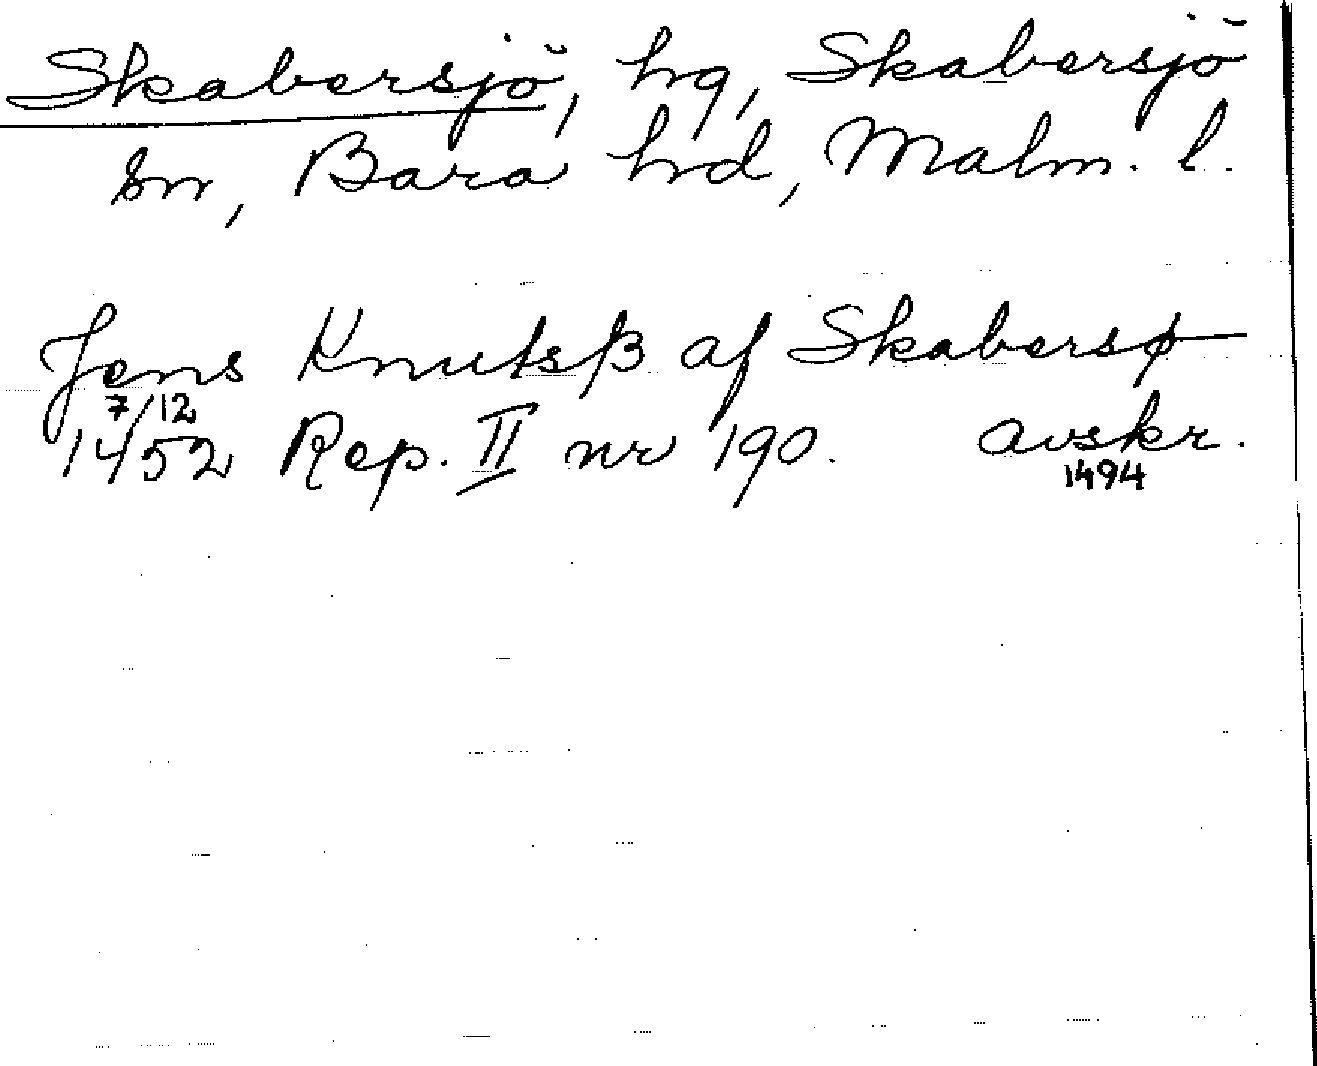 Skabersjö, hg, Skabersjö
sn, Bara hd, Malm. l.
Jens Knutsß af Skabersø
7/12
1452 Rep. II nr 190. avskr.
1494